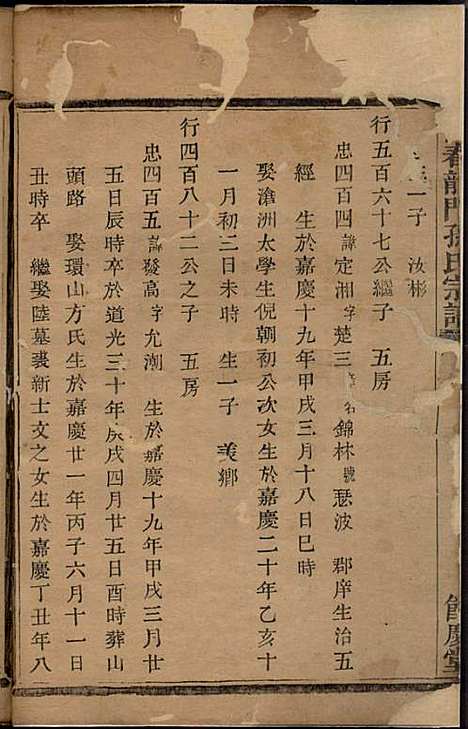 春龍門孫氏宗譜
餘慶堂
一子　汝彬
行五百六十七公繼子　五房
忠四百四諱定湘字楚三　名錦林號瑟波　郡庠生治五
經　生於嘉慶十九年甲戌三月十八日巳時
娶滄洲太學生倪朝初公次女生於嘉慶二十年乙亥十
一月初三日未時　生一子　美鄉
行四百八十二公之子　五房
忠四百五諱發高字允潮　生於嘉慶十九年甲戌三月廿
五日辰時卒於道光三十年庚戌四月廿五日酉時葬山
頭路　娶環山方氏生於嘉慶廿一年丙子六月十一日
丑時卒　繼娶陸墓裘新士文之女生於嘉慶丁丑年八